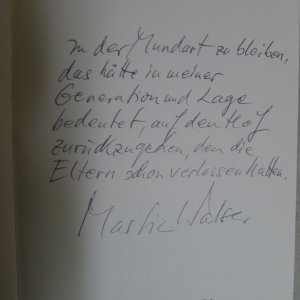 In der Mundart zu bleiben,
das hätte in meiner
Generation und Lage
bedeutet, auf den Hof
zurückzugehen, den die
Eltern schon verlassen hatten.
Martin Walser